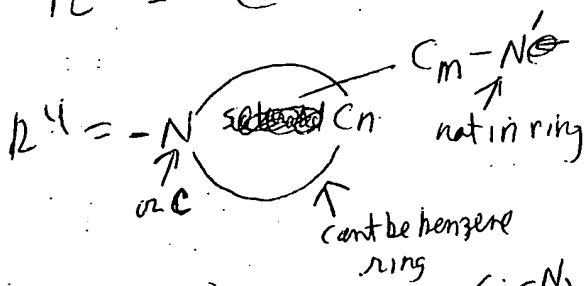 Cm - N
R4 = - N Cn
not in ring
or C
can't be benzene
ring